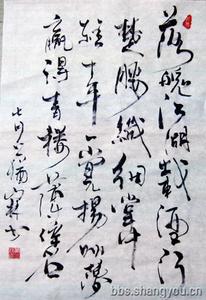 落魄江湖載酒行
楚腰纖細掌中
輕十年一覺揚州夢
贏得青樓薄倖名
七月 书
bbs.shangyou.cn